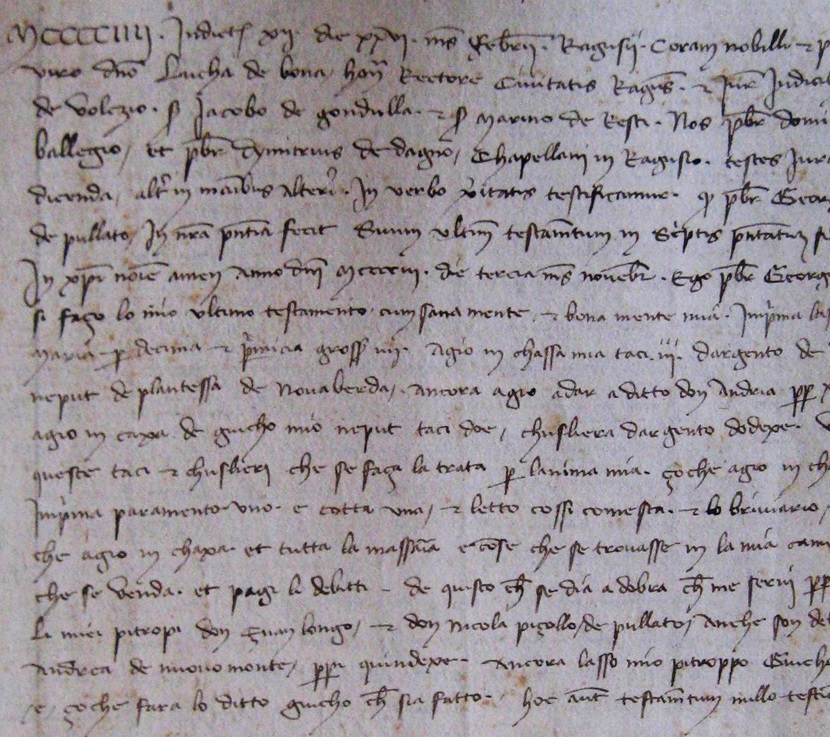 MCCCCIIII. Indictẽ xii. die xxvi. mẽs Febrũ. Ragusii. Coram nobilli
viro dño Laicha de bona, hoñ Rectore Civitatis Ragus̃. et Jur̃ Judici
de volezio. s̃ Jacobo de gondulla. et s̃ marino de Resti. Nos p̃br dom
ballegio, et p̃br dymitrius de dagno, Chapellani in Ragusio. testes Jura
dicenda, alt̃r in manibus alteri9. In verbo ṽitatis testificamur. q̃ p̃br Geor
de pullato, In ñra p̃ntia fecit Suum ultim̃ testam̃tum in Sc̃ptis p̃ntatuʒ
In xp̃i noĩe amen Anno dñi Mcccciii. die tercia mẽs novẽbr̃. Ego p̃br Georg
si faço lo mio ultimo testamento cum sana mente, et bona mente mia. Imp̃ma
maria p̃ decima et p̃micia gross̃ iiii. Agio in chassa mia taci. iii. dargento de
neput de plantessa de Novaberda, Ancora agio adar a ditto don Andria p̃p̃
agio in caxa de giucho mio neput taci doe, chusliera dargento dodexe.
queste taci et chuslieri che se faça la trata p̃ lanima mia. çoche agio in ch
Imp̃ma paramento uno. e cotta una, et letto cossi comesta. et lo briviario,
che agio in chaxa. et tutta la massaria e cose che se trovasse in la mia cam
che se venda. et pagi li debitti de questo ch̃ se dia a dobra ch̃ me servi p̃p̃
li miei pitropi don Çuan longo, et don nicola piçollo de pullato, Anche son de
Andrea de nuovomonte, p̃p̃i quindexe. Ancora lasso mio pitroppo Giucho
e, çoche fara lo ditto giucho ch̃ sia fatto. hoc aut̃ testam̃tum nullo testi